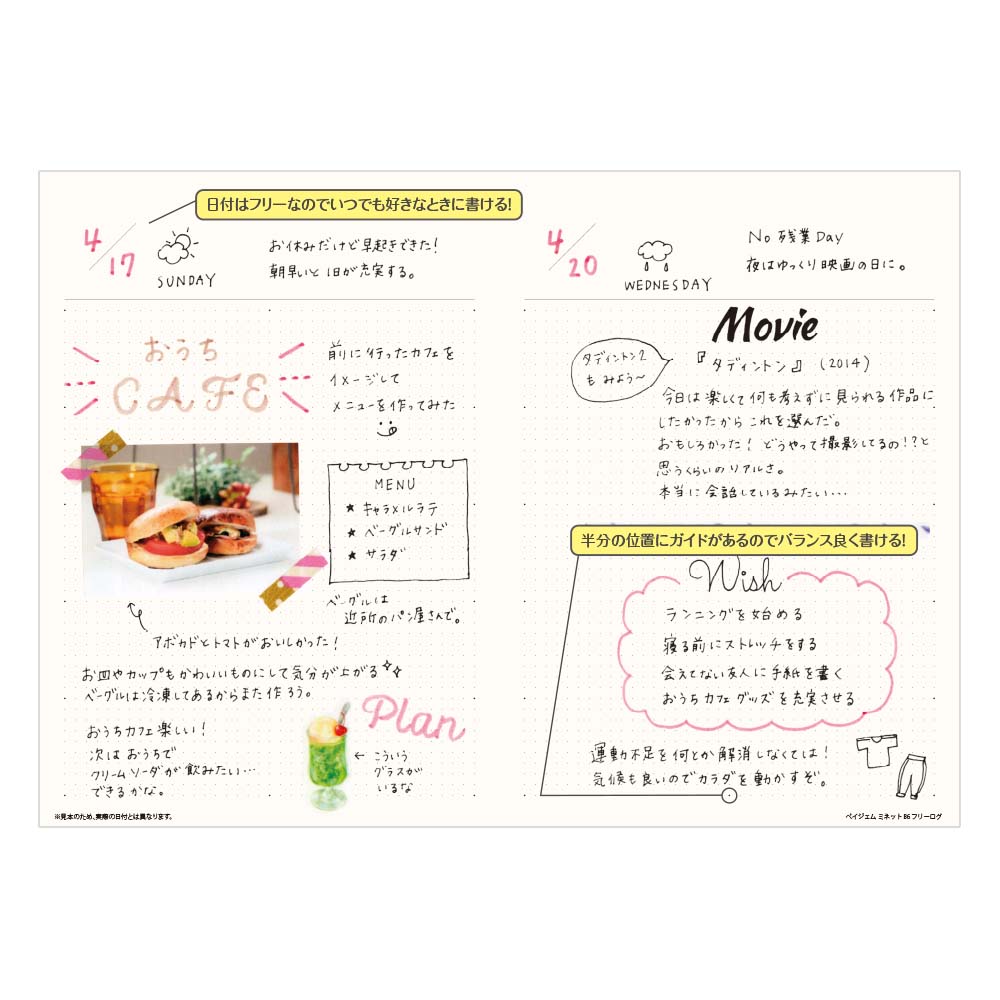 日付はフリーなのでいつでも好きなときに書ける!
4/17
SUNDAY
お休みだけど早起きできた!
朝早いと1日が充実する。
おうち
CAFE
前に行ったカフェを
イメージして
メニューを作ってみた
MENU
★ キャラメルラテ
★ ベーグルサンド
★ サラダ
ベーグルは
近所のパン屋さんで。
アボカドとトマトがおいしかった!
お皿やカップもかわいいものにして気分が上がる
ベーグルは冷凍してあるからまた作ろう。
おうちカフェ楽しい!
次は おうちで
クリームソーダが飲みたい…
できるかな。
Plan
← こういう
グラスが
いるな
※見本のため、実際の日付とは異なります。
4/20
WEDNESDAY
No 残業 Day
夜はゆっくり映画の日に。
Movie
タディントン2
も みよう〜
『タディントン』(2014)
今日は楽しくて何も考えずに見られる作品に
したかったから これを選んだ。
おもしろかった! どうやって撮影してるの!?と
思うくらいのリアルさ。
本当に会話しているみたい…
半分の位置にガイドがあるのでバランス良く書ける!
Wish
ランニングを始める
寝る前にストレッチをする
会えてない友人に手紙を書く
おうちカフェグッズを充実させる
運動不足を何とか解消しなくては!
気候も良いのでカラダを動かすぞ。
ペイジェム ミネット B6 フリーログ